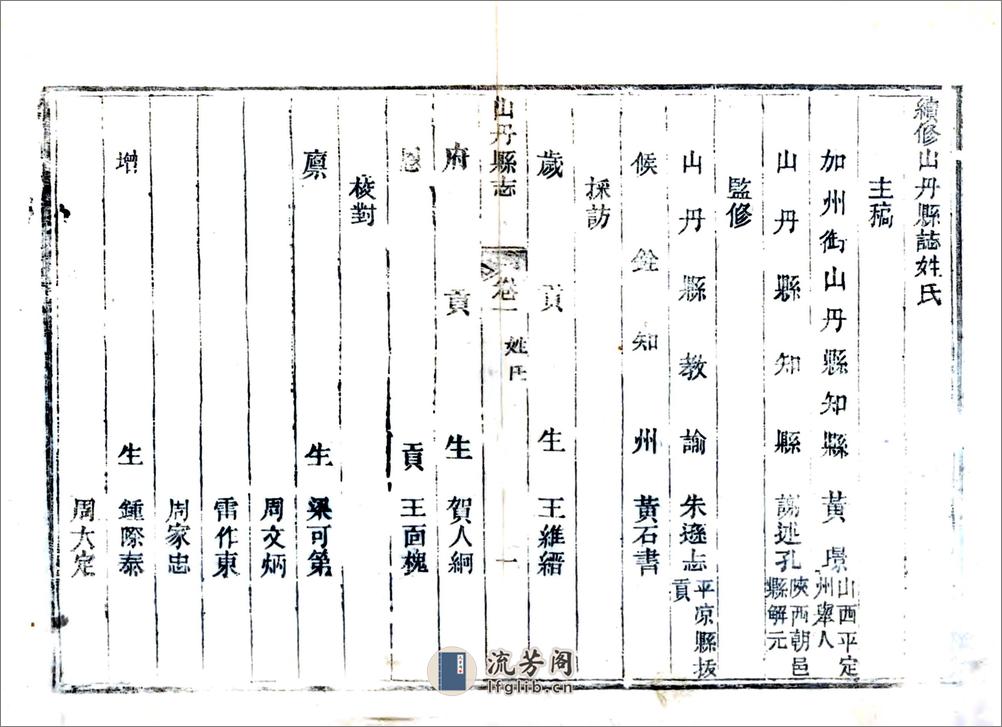 續修山丹縣誌姓氏
主稿
加州銜山丹縣知縣黃璟山西平定州舉人
山丹縣知縣謝述孔陝西朝邑縣解元
監修
山丹縣教諭朱遜志平凉縣拔貢
候銓知州黃石書
採訪
歲貢生王維縉
山丹縣志 卷一 姓氏 一
府貢生賀人絅
恩貢王面槐
校對
廩生梁可第
周文炳
雷作東
周家忠
增生鍾際泰
周大定
流芳阁
lfglib.cn